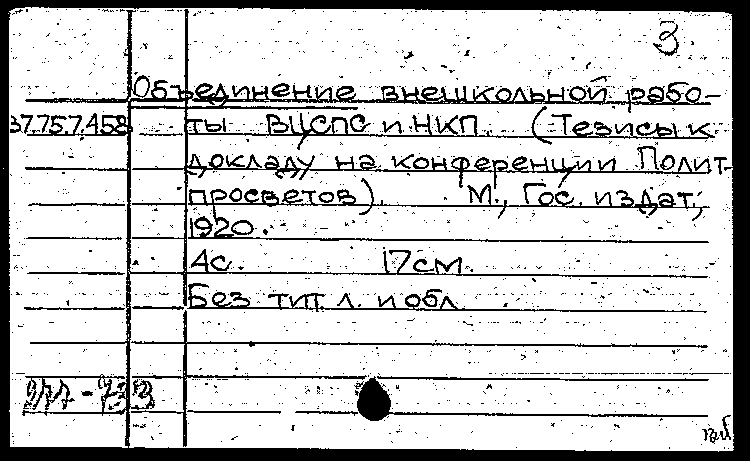 3
Объединение внешкольной рабо-
37.75.7.458 ты ВЦСПС и НКП. (Тезисы к
докладу на конференции Полит-
просветов). М., Гос. издат,
1920.
4с. 17см.
Без тит л. и обл.